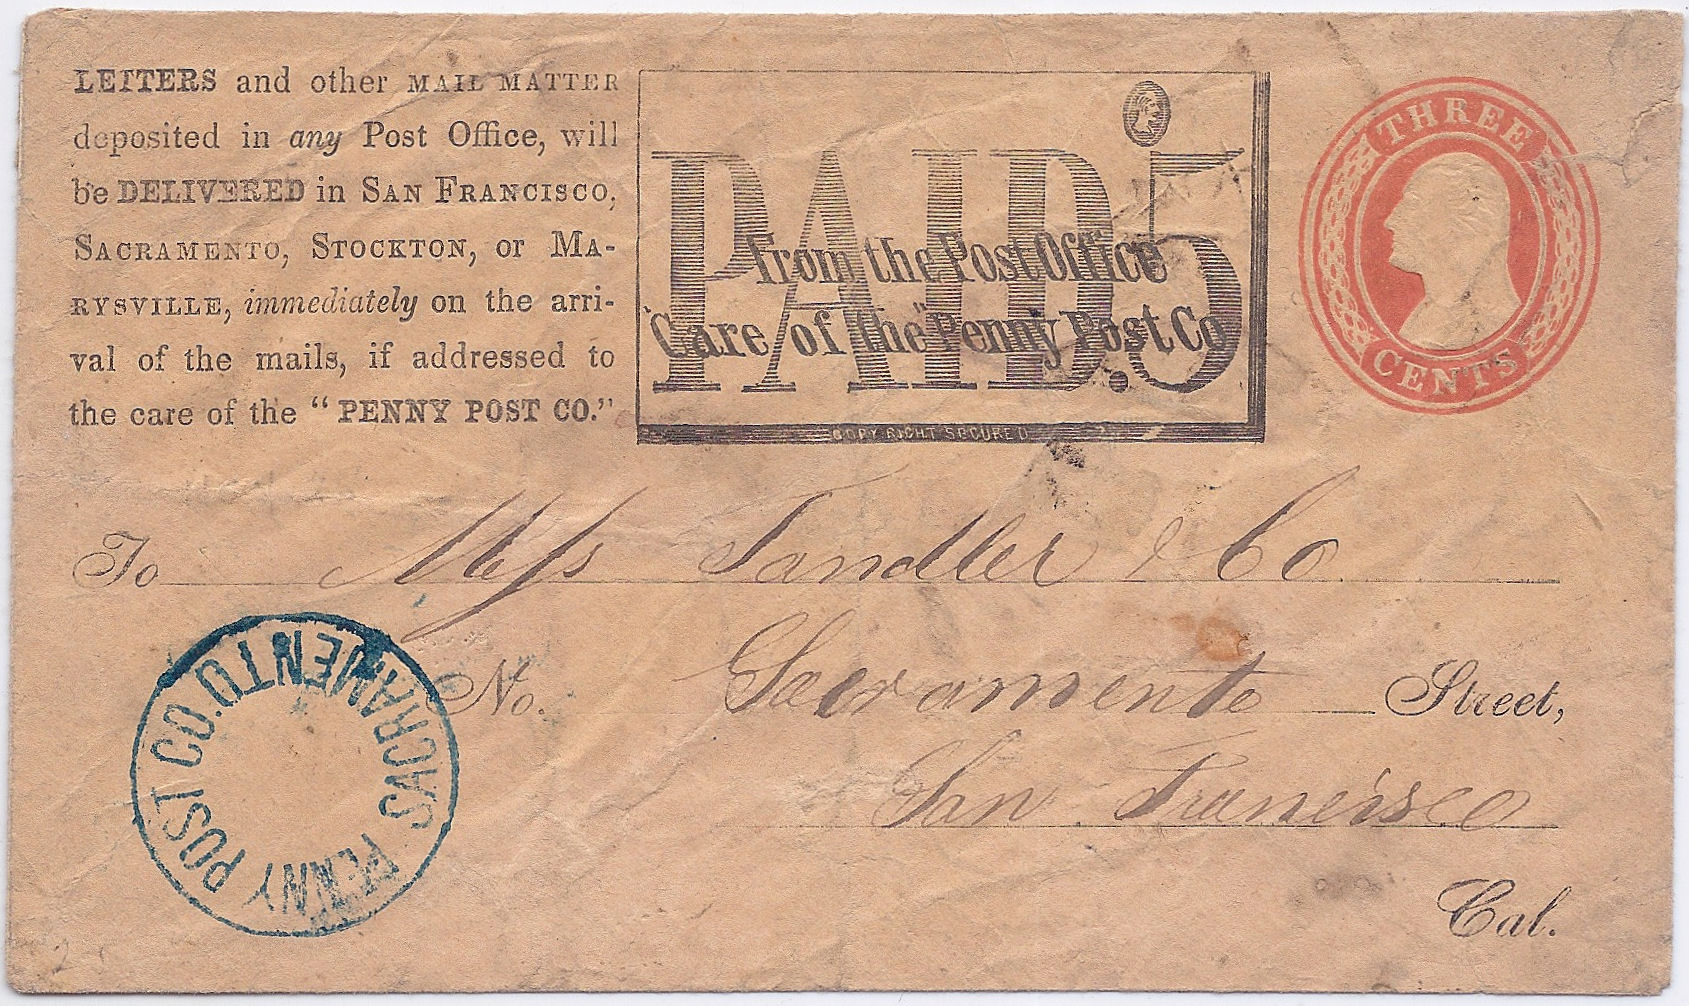 LETTERS and other MAIL MATTER
deposited in any Post Office, will
be DELIVERED in SAN FRANCISCO,
SACRAMENTO, STOCKTON, or MA-
RYSVILLE, immediately on the arri-
val of the mails, if addressed to
the care of the “ PENNY POST CO.”
PAID.5
from the Post Office
"Care of the "Penny Post Co
COPY RIGHT SECURED
THREE
CENTS
To Mess Sandler & Co
No. Sacramento Street,
San Francisco
Cal.
PENNY POST CO. SACRAMENTO
2